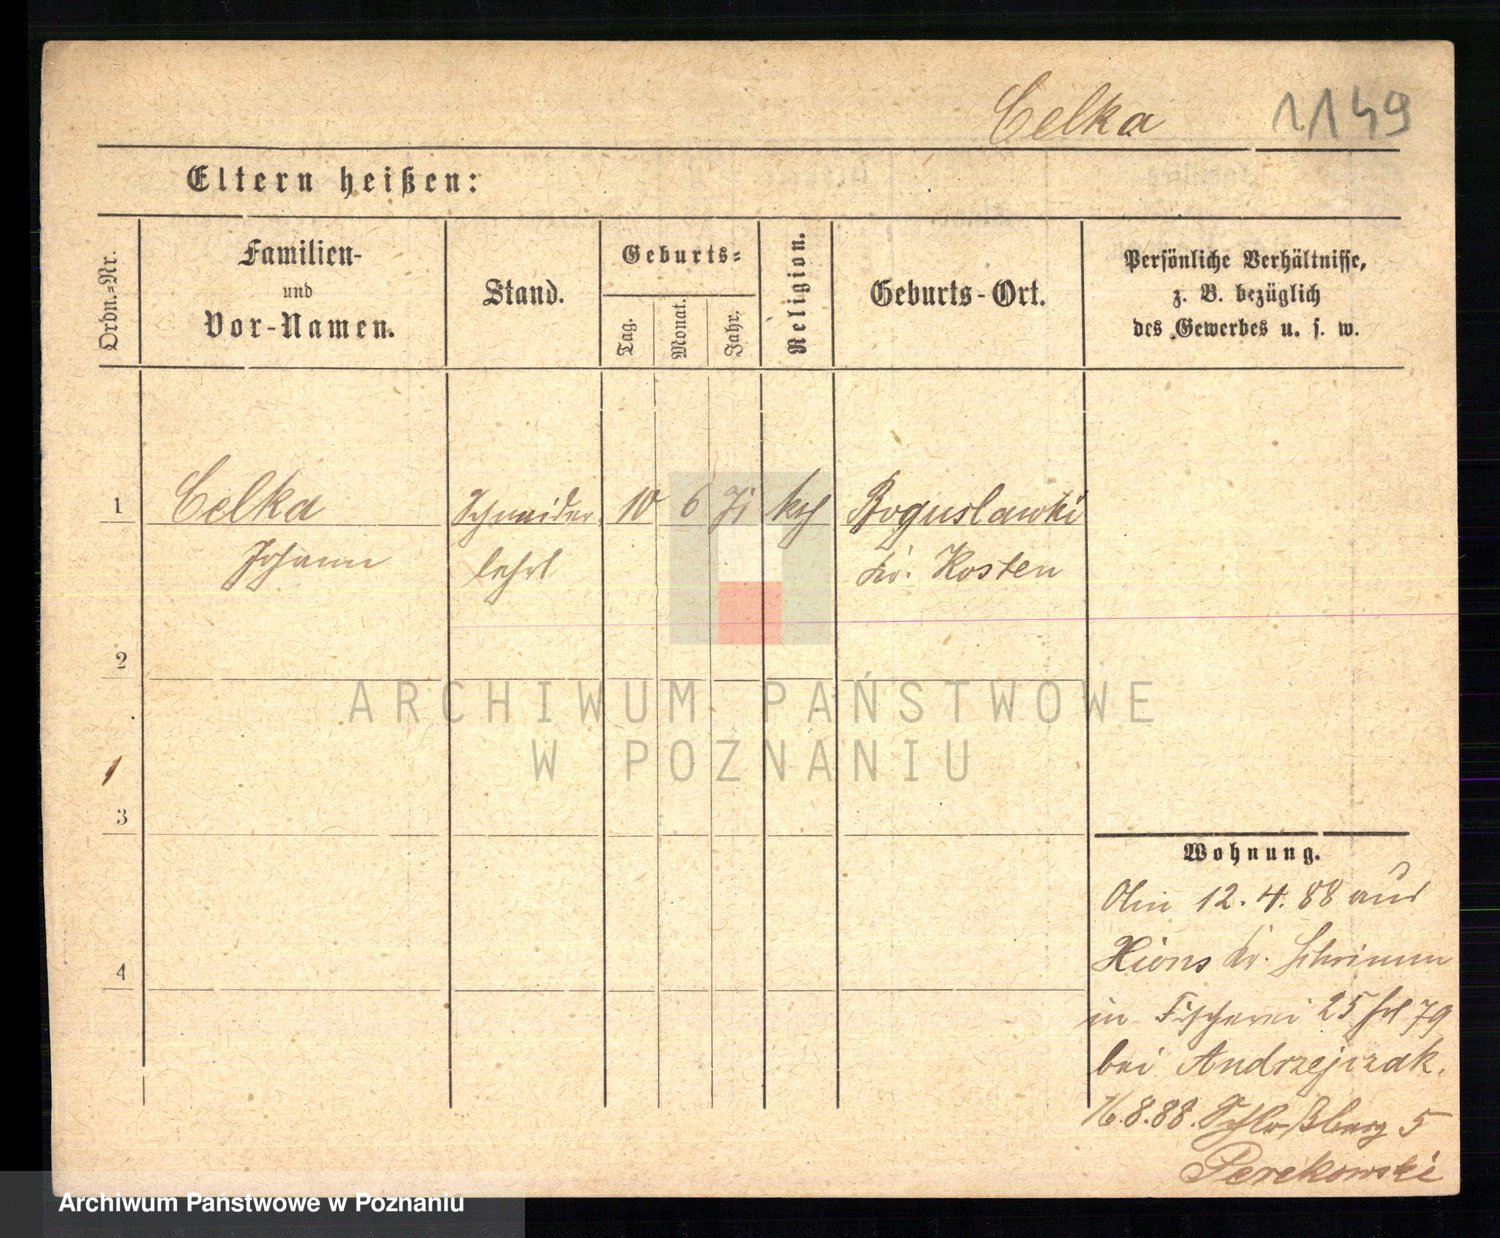 Celka 1149
Eltern heißen:
Ordn.=Nr.
Familien-
und
Vor-Namen.
Stand.
Geburts=
Tag.
Monat.
Jahr.
Religion.
Geburts-Ort.
Persönliche Verhältnisse,
z. B. bezüglich
des Gewerbes u. s. w.
1 Celka Schneider 10 6 kth Boguslawki
Johann lehrl Kr. Kosten
2
3
4
Wohnung.
12.4.88 aus
Xions Kr. Schrimm
in Fischerei 25
bei Andrzejczak.
16.8.88. Schloßberg 5
Perekowski
ARCHIWUM PAŃSTWOWE
W POZNANIU
Archiwum Państwowe w Poznaniu